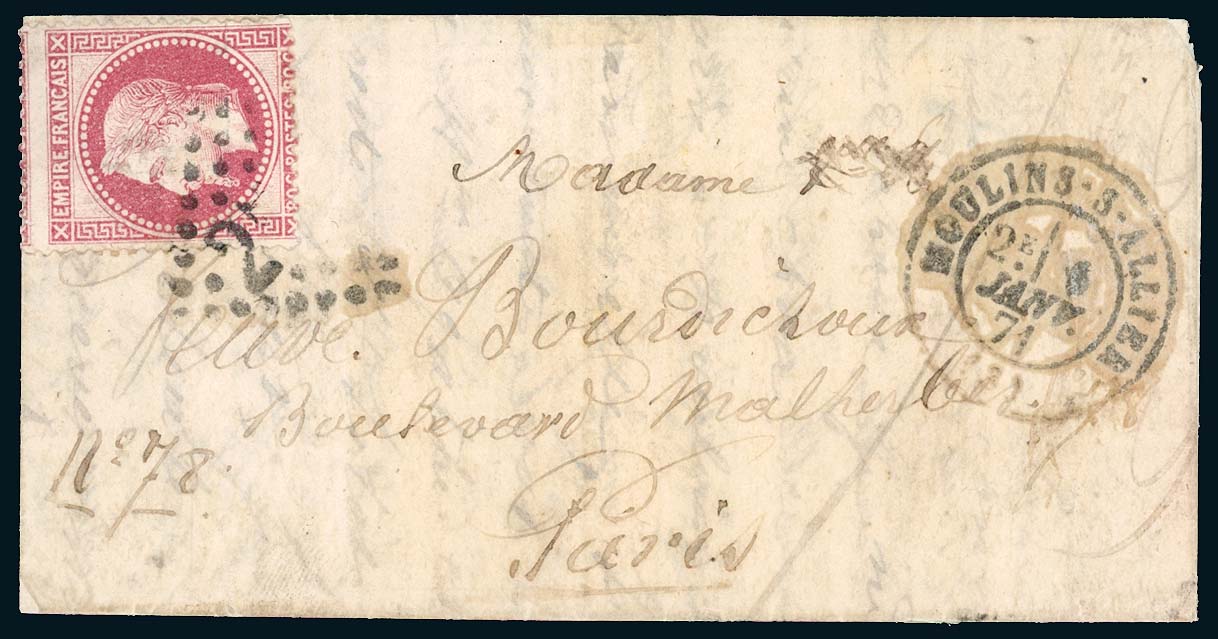 EMPIRE FRANÇAIS
POSTES
MOULINS-S-ALLIER
2E
JANV.
71
Madame
Veuve Bourdichoux
Boulevard Malherbes
Paris
No 78.